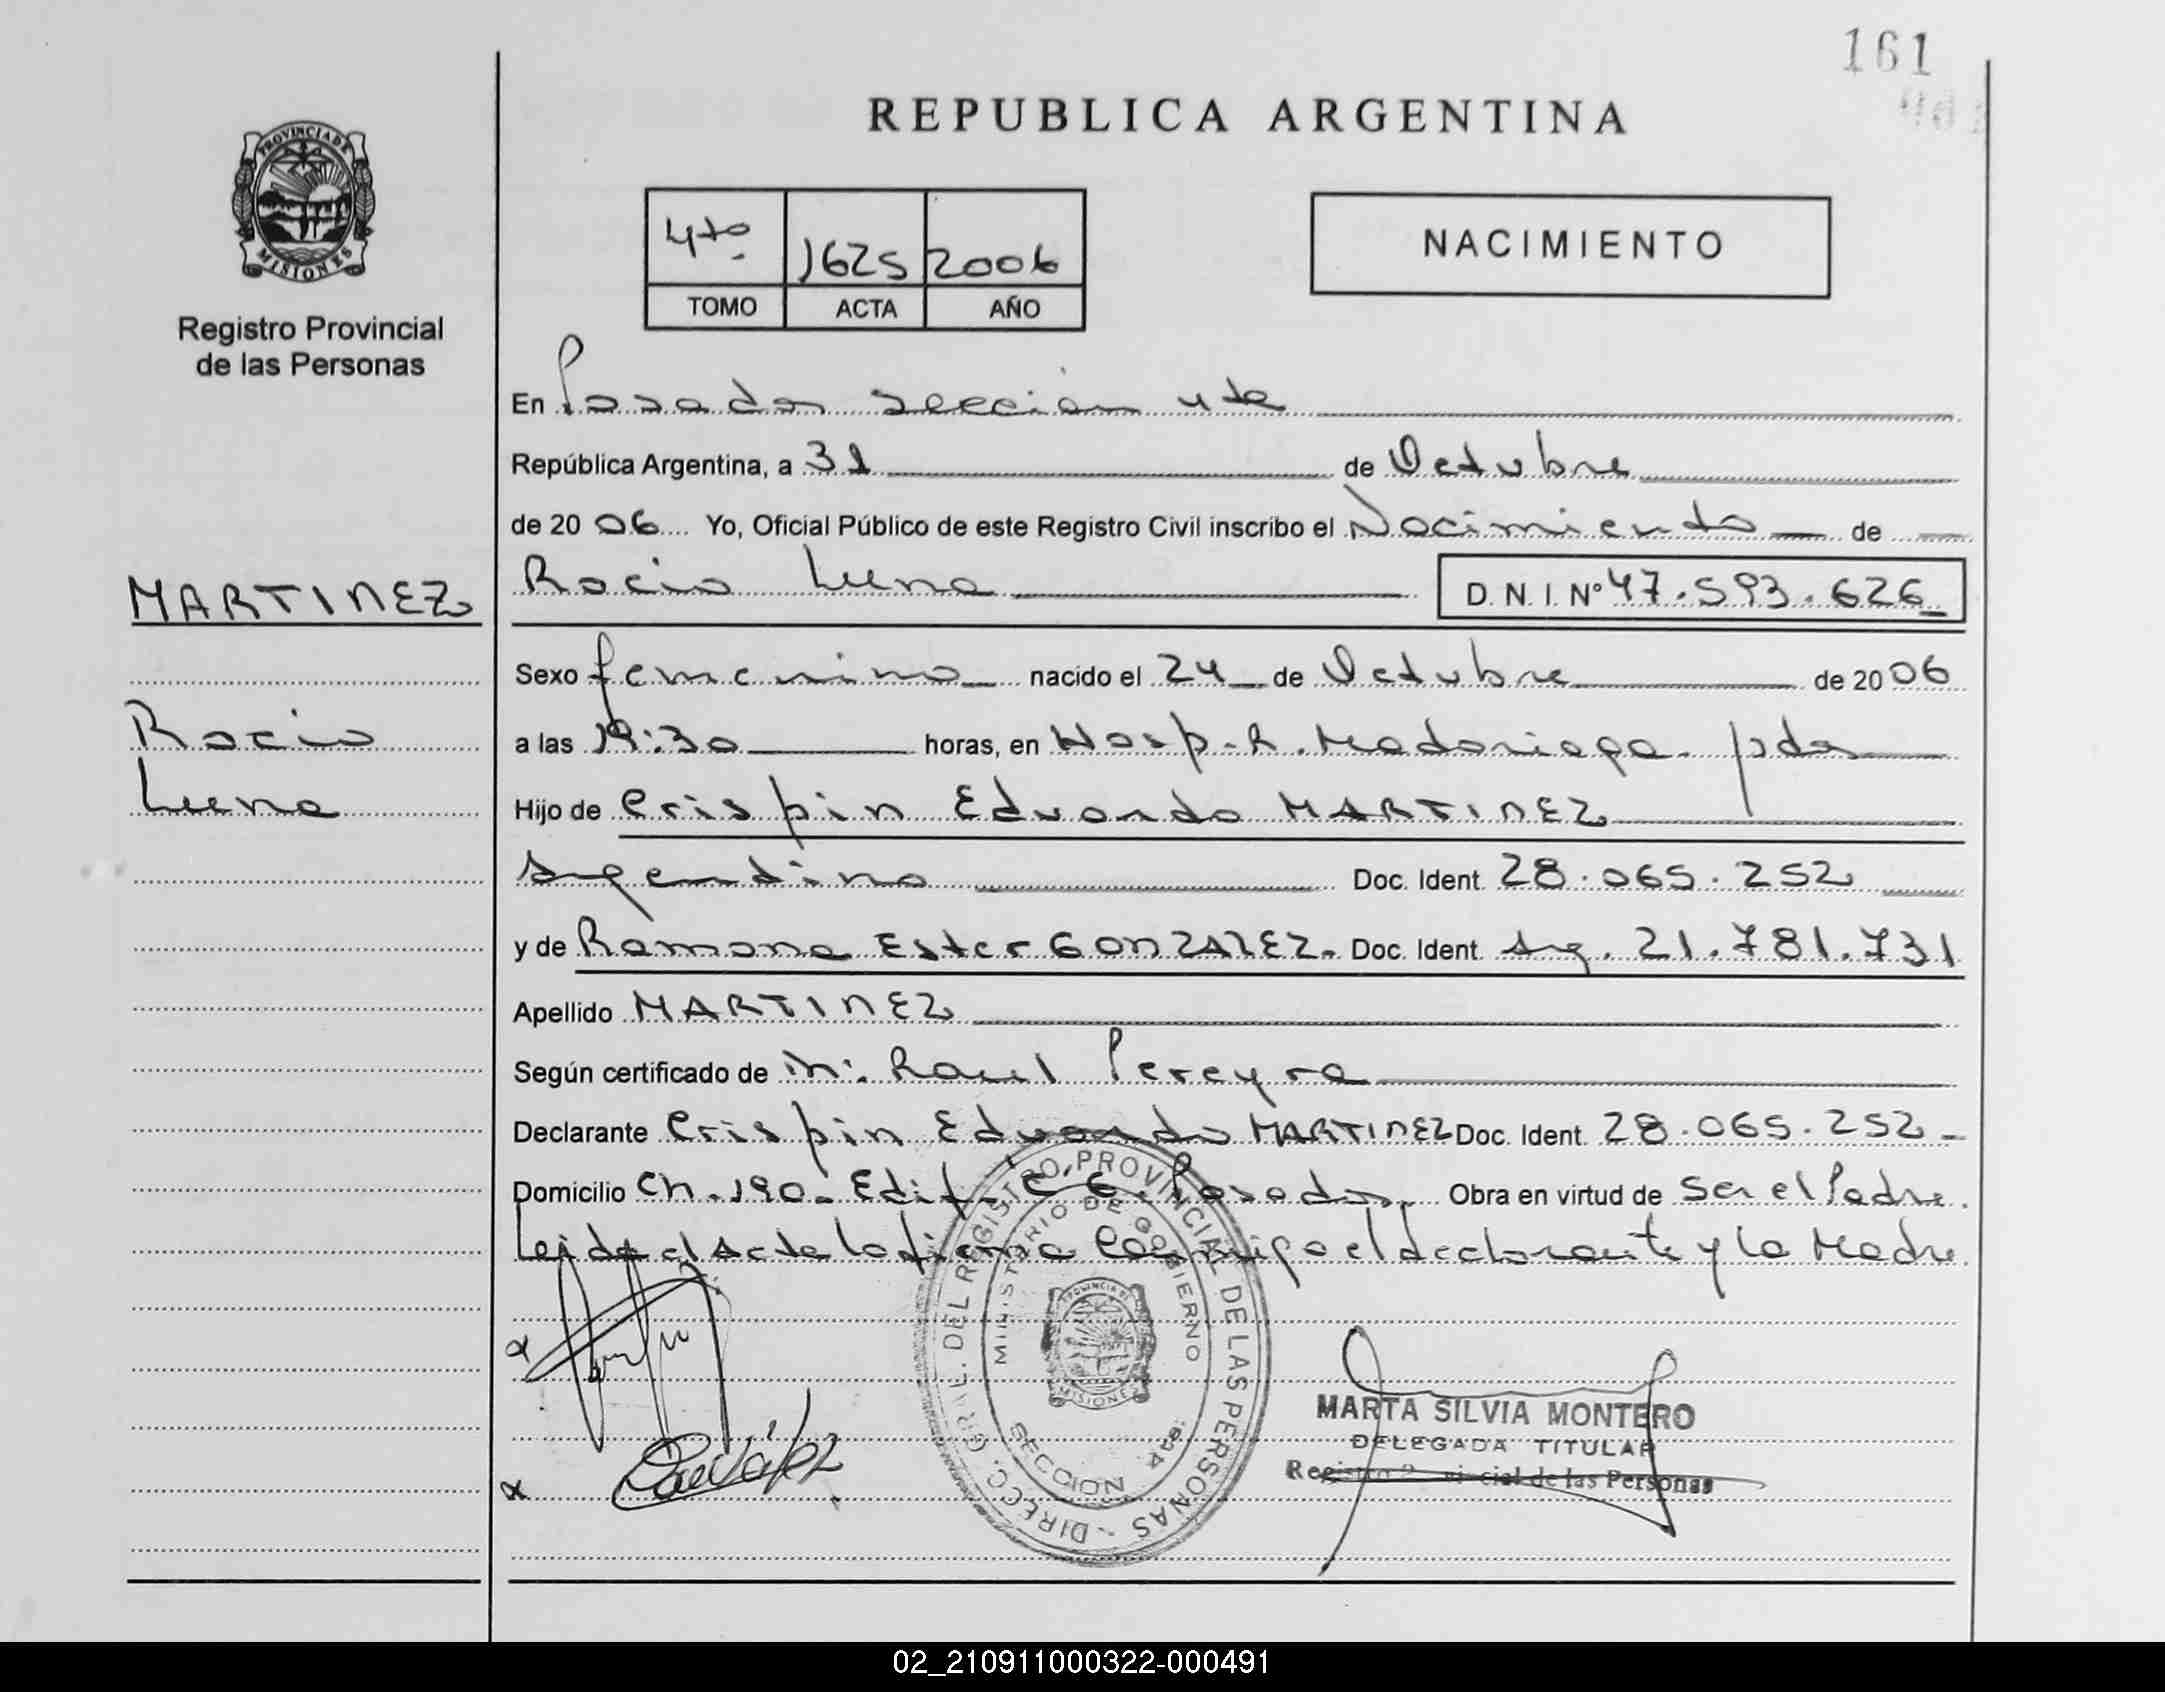 161
REPUBLICA ARGENTINA
PROVINCIA DE
MISIONES
Registro Provincial
de las Personas
4to 1625 2006
TOMO ACTA AÑO
NACIMIENTO
En Posadas Sección 4ta
República Argentina, a 31 de Octubre
de 20 06 Yo, Oficial Público de este Registro Civil inscribo el Nacimiento de
MARTINEZ
Rocio Luna D. N. I. Nº 47.593.626
Sexo femenino nacido el 24 de Octubre de 20 06
Rocio
a las 19:30 horas, en Hosp. R. Madariaga. Pdas
Luna
Hijo de Crispin Eduardo MARTINEZ
Argentino Doc. Ident. 28.065.252
y de Ramona Ester GONZALEZ. Doc. Ident. Arg. 21.781.731
Apellido MARTINEZ
Según certificado de M: Raul Pereyra
Declarante Crispin Eduardo MARTINEZ Doc. Ident. 28.065.252
Domicilio Ch. 190 - Edif. C 6. Posadas. Obra en virtud de ser el Padre.
Leida el Acta la firma Conmigo el declarante y la Madre
DIRECC. GRAL. DEL REGISTRO PROVINCIAL DE LAS PERSONAS -
MINISTERIO DE GOBIERNO
PROVINCIA DE
MISIONES
SECCION 4ta.
MARTA SILVIA MONTERO
DELEGADA TITULAR
Registro Provincial de las Personas
02_210911000322-000491